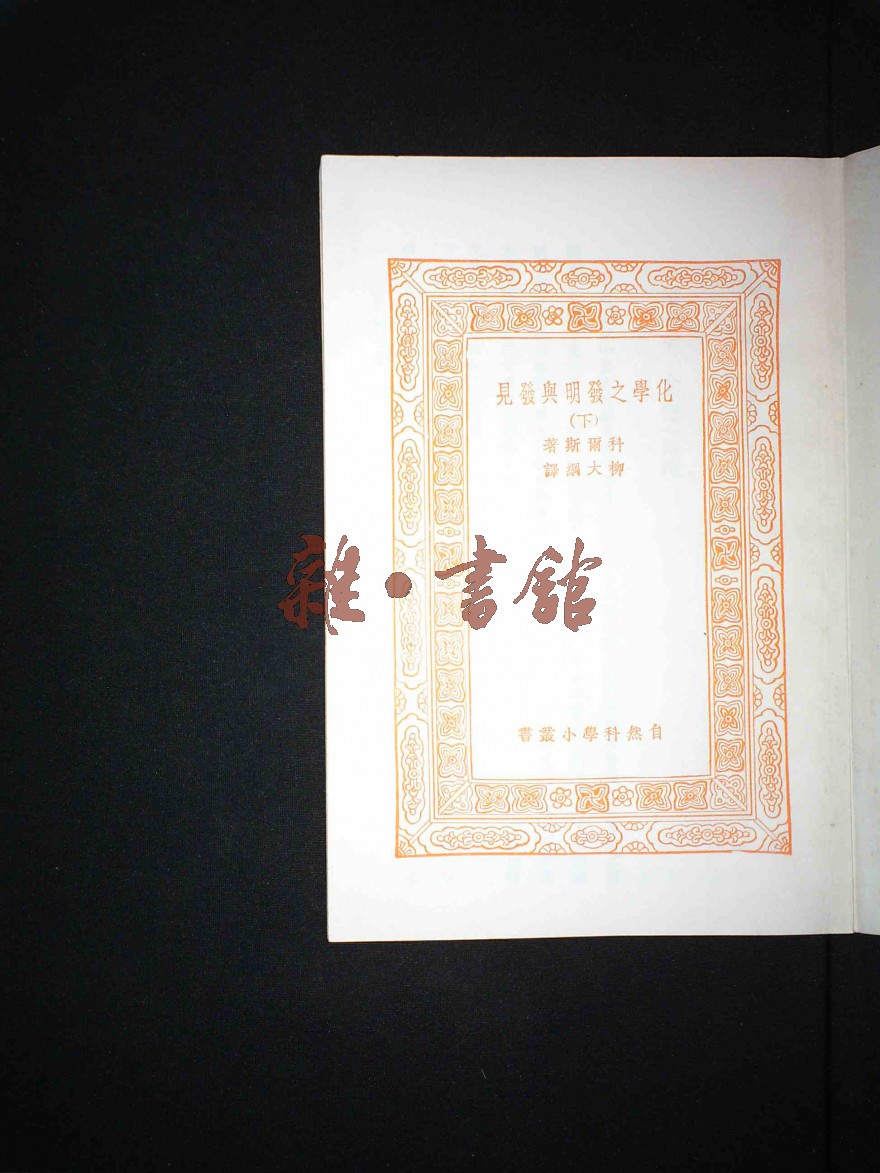 化學之發明與發見
(下)
科爾斯著
柳大綱譯
雜·書館
自然科學小叢書